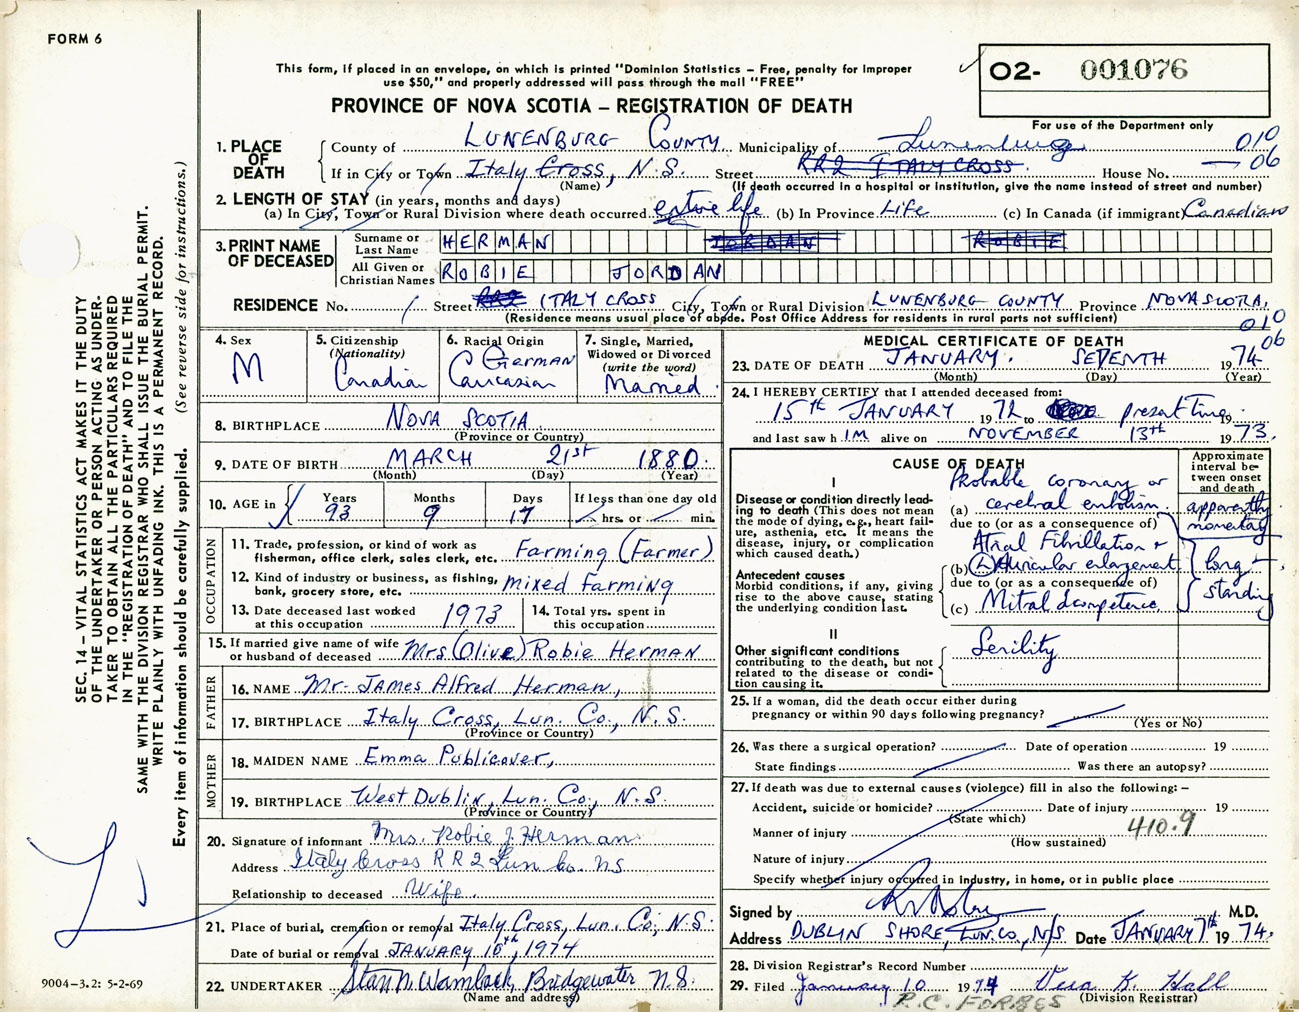 FORM 6
This form, if placed in an envelope, on which is printed "Dominion Statistics – Free, penalty for improper
use $50," and properly addressed will pass through the mail "FREE"
02- 001076
PROVINCE OF NOVA SCOTIA – REGISTRATION OF DEATH
For use of the Department only
1. PLACE OF DEATH County of LUNENBURG COUNTY Municipality of Lunenburg 010
If in City or Town Italy Cross, N.S. Street RR2 ITALY CROSS House No. 06
(Name) (If death occurred in a hospital or institution, give the name instead of street and number)
2. LENGTH OF STAY (in years, months and days)
(a) In City, Town or Rural Division where death occurred entire life (b) In Province Life (c) In Canada (if immigrant) Canadian
3. PRINT NAME OF DECEASED Surname or Last Name HERMAN JORDAN ROBIE
All Given or Christian Names ROBIE JORDAN
RESIDENCE No. Street RR2 ITALY CROSS City, Town or Rural Division LUNENBURG COUNTY Province NOVA SCOTIA.
(Residence means usual place of abode. Post Office Address for residents in rural parts not sufficient)
010
06
4. Sex M
5. Citizenship (Nationality) Canadian
6. Racial Origin German Caucasian
7. Single, Married, Widowed or Divorced (write the word) Married
8. BIRTHPLACE NOVA SCOTIA
(Province or Country)
9. DATE OF BIRTH MARCH 21st 1880.
(Month) (Day) (Year)
10. AGE in Years 93 Months 9 Days 17 If less than one day old hrs. or min.
OCCUPATION
11. Trade, profession, or kind of work as fisherman, office clerk, sales clerk, etc. Farming (Farmer)
12. Kind of industry or business, as fishing, bank, grocery store, etc. mixed Farming
13. Date deceased last worked at this occupation 1973
14. Total yrs. spent in this occupation
15. If married give name of wife or husband of deceased Mrs (Olive) Robie HERMAN
FATHER
16. NAME Mr. JAMES Alfred Herman,
17. BIRTHPLACE Italy Cross, Lun. Co., N.S.
(Province or Country)
MOTHER
18. MAIDEN NAME Emma Publicover,
19. BIRTHPLACE West Dublin, Lun. Co., N.S.
(Province or Country)
20. Signature of informant Mrs. Robie J. Herman
Address Italy Cross RR2 Lun Co. NS
Relationship to deceased Wife.
21. Place of burial, cremation or removal Italy Cross, Lun. Co., N.S.
Date of burial or removal JANUARY 10th, 1974
22. UNDERTAKER Bridgewater N.S.
(Name and address)
MEDICAL CERTIFICATE OF DEATH
23. DATE OF DEATH JANUARY. SEVENTH 1974
(Month) (Day) (Year)
24. I HEREBY CERTIFY that I attended deceased from:
15th JANUARY 1972 to present time 19
and last saw h IM alive on NOVEMBER 13th 1973.
CAUSE OF DEATH
Approximate interval between onset and death
I
Disease or condition directly leading to death (This does not mean the mode of dying, e.g., heart failure, asthenia, etc. It means the disease, injury, or complication which caused death.)
(a) Probable coronary or cerebral embolism
apparently momentary
due to (or as a consequence of)
Antecedent causes
Morbid conditions, if any, giving rise to the above cause, stating the underlying condition last.
(b) Atrial Fibrillation + (L) Auricular enlargement
due to (or as a consequence of)
(c) Mitral Incompetence
long-standing
II
Other significant conditions contributing to the death, but not related to the disease or condition causing it.
Senility
25. If a woman, did the death occur either during pregnancy or within 90 days following pregnancy?
(Yes or No)
26. Was there a surgical operation? Date of operation 19
State findings Was there an autopsy?
27. If death was due to external causes (violence) fill in also the following: –
Accident, suicide or homicide? Date of injury 19
(State which)
Manner of injury 410.9
(How sustained)
Nature of injury
Specify whether injury occurred in industry, in home, or in public place
Signed by M.D.
Address DUBLIN SHORE, LUN. CO., N/S Date JANUARY 7th 1974.
28. Division Registrar's Record Number
29. Filed January 10 1974 Vera K. Hall
(Division Registrar)
R.C. FORBES
SEC. 14 – VITAL STATISTICS ACT MAKES IT THE DUTY
OF THE UNDERTAKER OR PERSON ACTING AS UNDER-
TAKER TO OBTAIN ALL THE PARTICULARS REQUIRED
IN THE "REGISTRATION OF DEATH" AND TO FILE THE
SAME WITH THE DIVISION REGISTRAR WHO SHALL ISSUE THE BURIAL PERMIT.
WRITE PLAINLY WITH UNFADING INK. THIS IS A PERMANENT RECORD.
Every item of information should be carefully supplied. (See reverse side for instructions.)
9004-3.2: 5-2-69